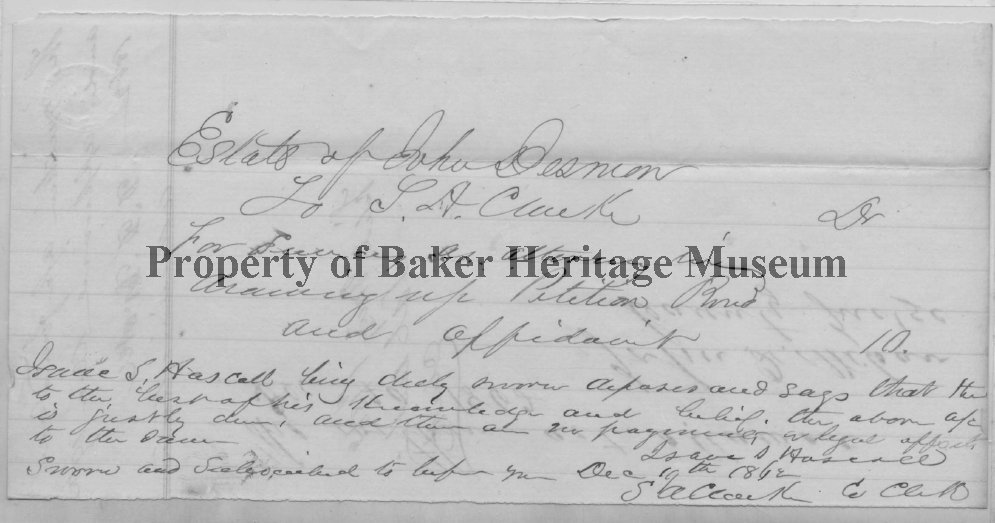 Estate of John Desmon
To S. A. Clark Dr
For Services as attorney in
Property of Baker Heritage Museum
drawing up Petition Bond
and affidavit 10.
Isaac S. Hascall being duly sworn deposes and says that the
to the best of his Knowledge and belief. the above a/c
is justly due, and there are no payments or legal offsets
to the same
Isaac S Hascall
Sworn and Subscribed to before me Dec 10th 1862
S A Clark Co Clerk